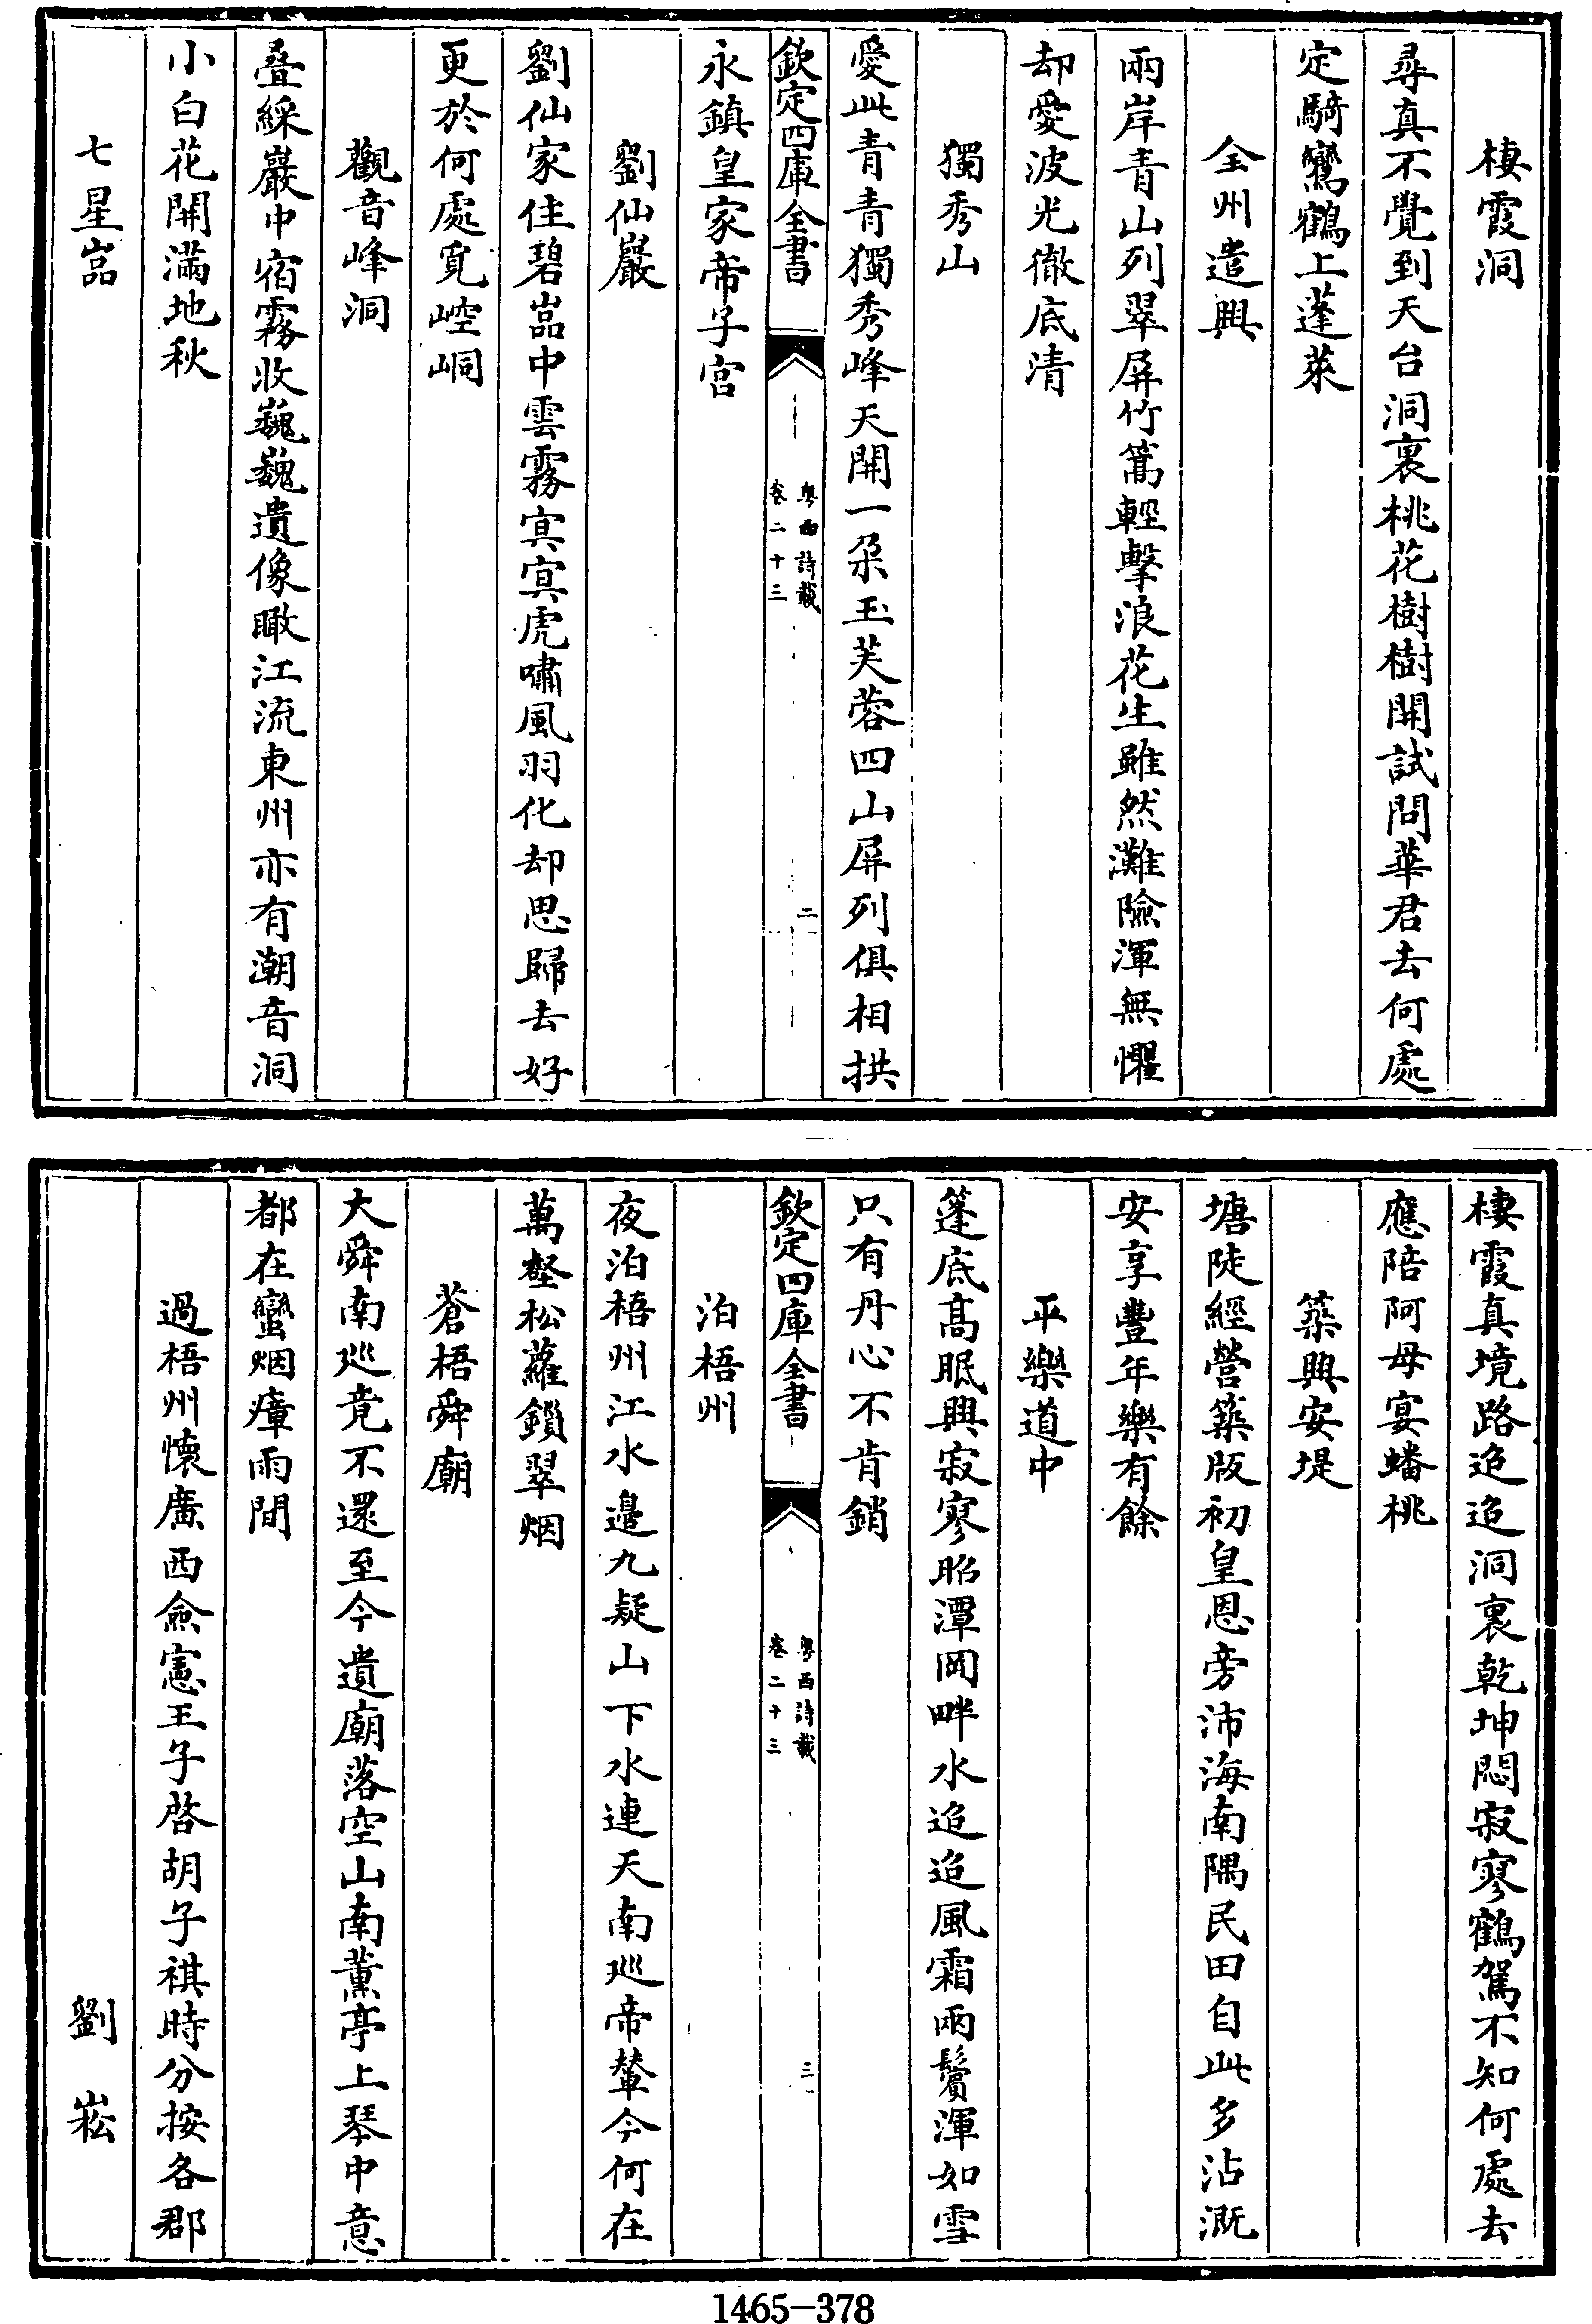 棲霞洞
尋真不覺到天台洞裏桃花樹樹開試問華君去何處
定騎鸞鶴上蓬萊
全州遣興
兩岸青山列翠屏竹篙輕擊浪花生雖然灘險渾無懼
却愛波光徹底清
獨秀山
愛此青青獨秀峰天開一朶玉芙蓉四山屏列俱相拱
欽定四庫全書
粤西詩載
卷二十三
二
永鎮皇家帝子宫
劉仙巖
劉仙家住碧嵓中雲霧㝠㝠虎嘯風羽化却思歸去好
更於何處覓崆峒
觀音峰洞
叠綵巖中宿霧收巍巍遺像瞰江流東州亦有潮音洞
小白花開滿地秋
七星嵓
棲霞真境路迢迢洞裏乾坤悶寂寥鶴駕不知何處去
應陪阿母宴蟠桃
築興安堤
塘陡經營築版初皇恩旁沛海南隅民田自此多沾溉
安享豐年樂有餘
平樂道中
篷底髙眠興寂寥昭潭岡畔水迢迢風霜兩鬢渾如雪
只有丹心不肯銷
欽定四庫全書
粤西詩載
卷二十三
三
泊梧州
夜泊梧州江水邉九疑山下水連天南廵帝輦今何在
萬壑松蘿鎖翠烟
蒼梧舜廟
大舜南廵竟不還至今遺廟落空山南薰亭上琴中意
都在蠻烟瘴雨間
過梧州懷廣西僉憲王子啓胡子祺時分按各郡
劉崧
1465-378